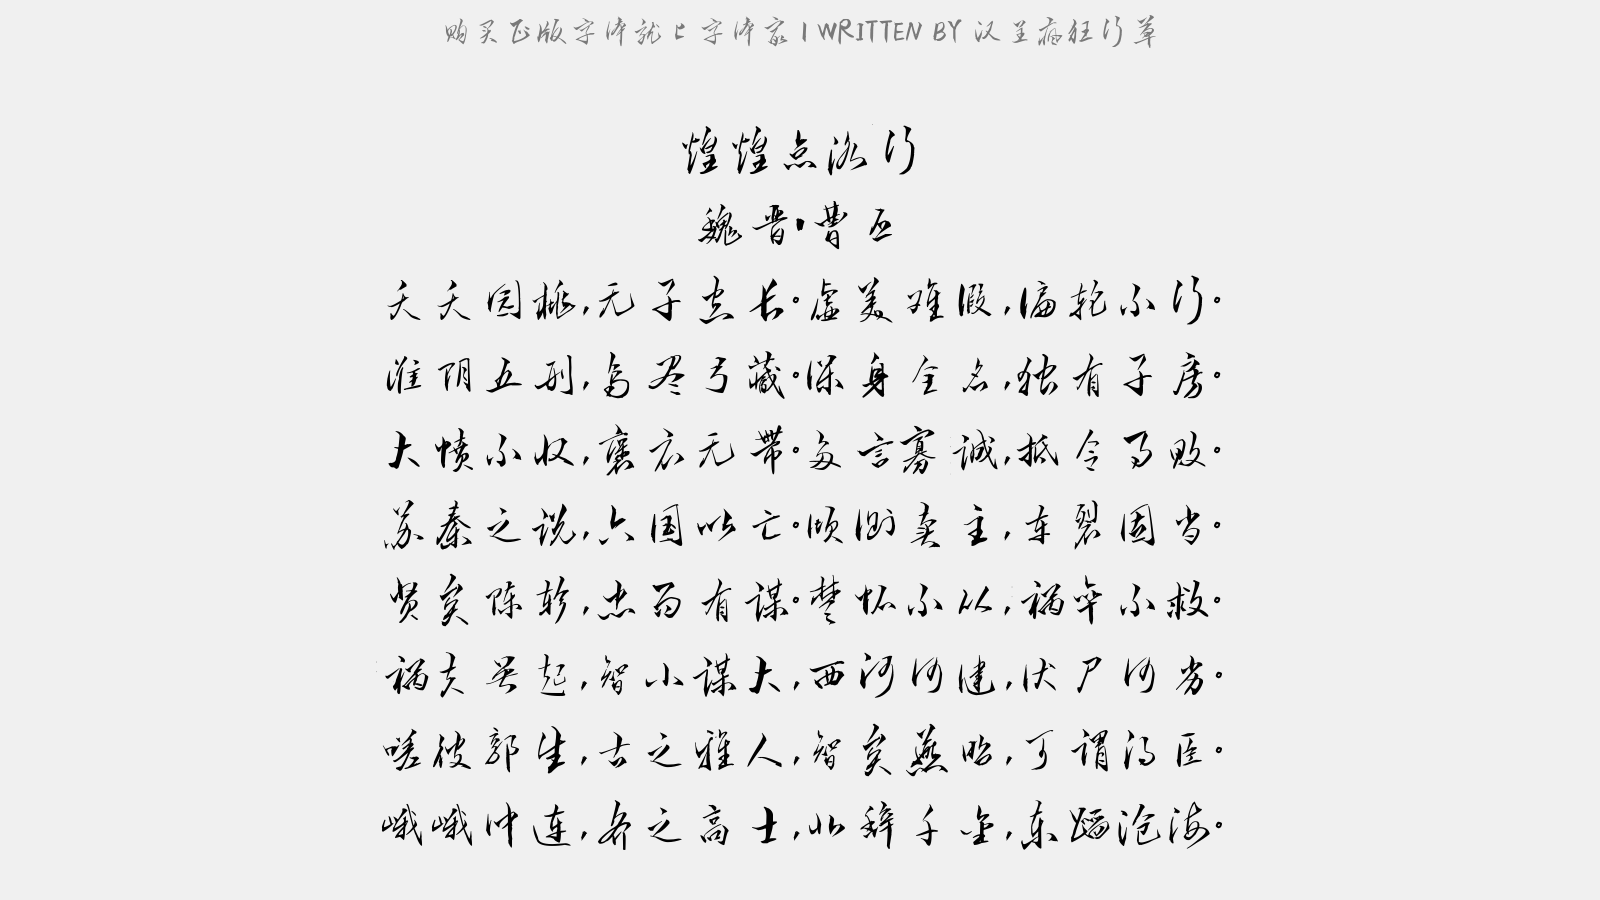 购买正版字体就上字体家 | WRITTEN BY 汉呈疯狂行草
煌煌京洛行
魏晋·曹丕
夭夭园桃,无子空长。虚美难假,偏轮不行。
淮阴五刑,鸟尽弓藏。保身全名,独有子房。
大愤不收,褒衣无带。多言寡诚,抵令事败。
苏秦之说,六国以亡。倾侧卖主,车裂固当。
贤矣陈轸,忠而有谋。楚怀不从,祸卒不救。
祸夫吴起,智小谋大,西河何健,伏尸何劣。
嗟彼郭生,古之雅人,智矣燕昭,可谓得臣。
峨峨仲连,齐之高士,北辞千金,东蹈沧海。